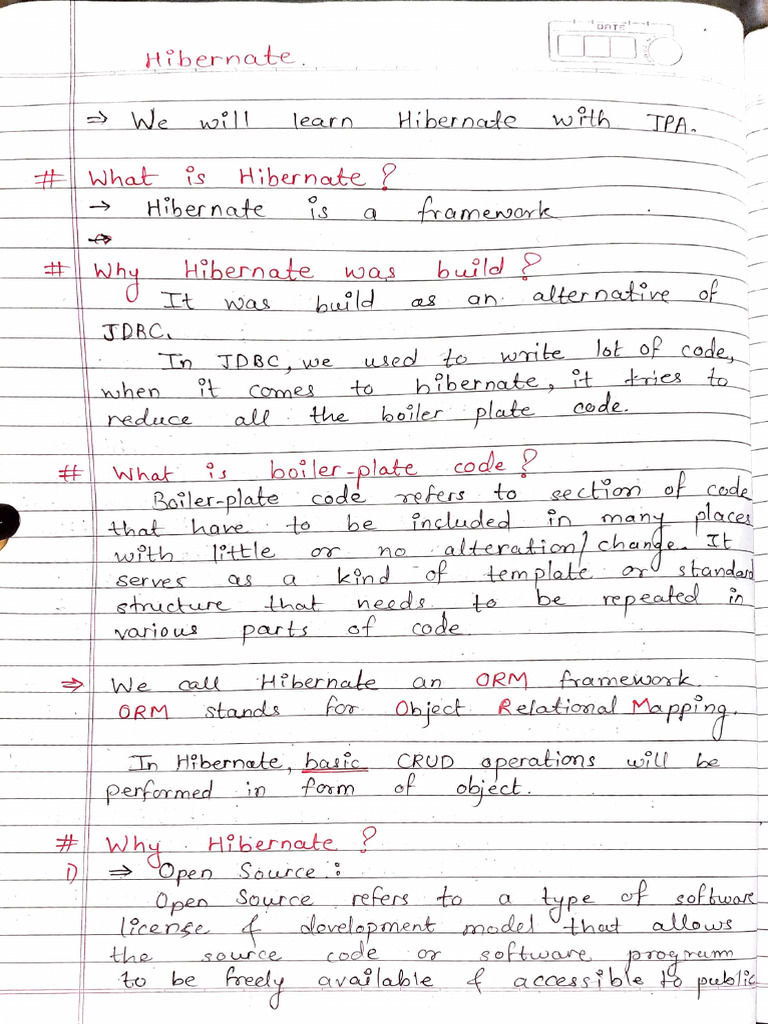 DATE
Hibernate.
⇒ We will learn Hibernate with JPA.
# What is Hibernate?
→ Hibernate is a framework
# Why Hibernate was build?
It was build as an alternative of
JDBC.
In JDBC, we used to write lot of code,
when it comes to hibernate, it tries to
reduce all the boiler plate code.
# What is boiler-plate code?
Boiler-plate code refers to section of code
that have to be included in many places
with little or no alteration/change. It
serves as a kind of template or standard
structure that needs to be repeated in
various parts of code
⇒ We call Hibernate an ORM framework.
ORM stands for Object Relational Mapping.
In Hibernate, basic CRUD operations will be
performed in form of object.
# Why Hibernate?
1) ⇒ Open Source:
Open Source refers to a type of software
license & development model that allows
the source code or software program
to be freely available & accessible to public